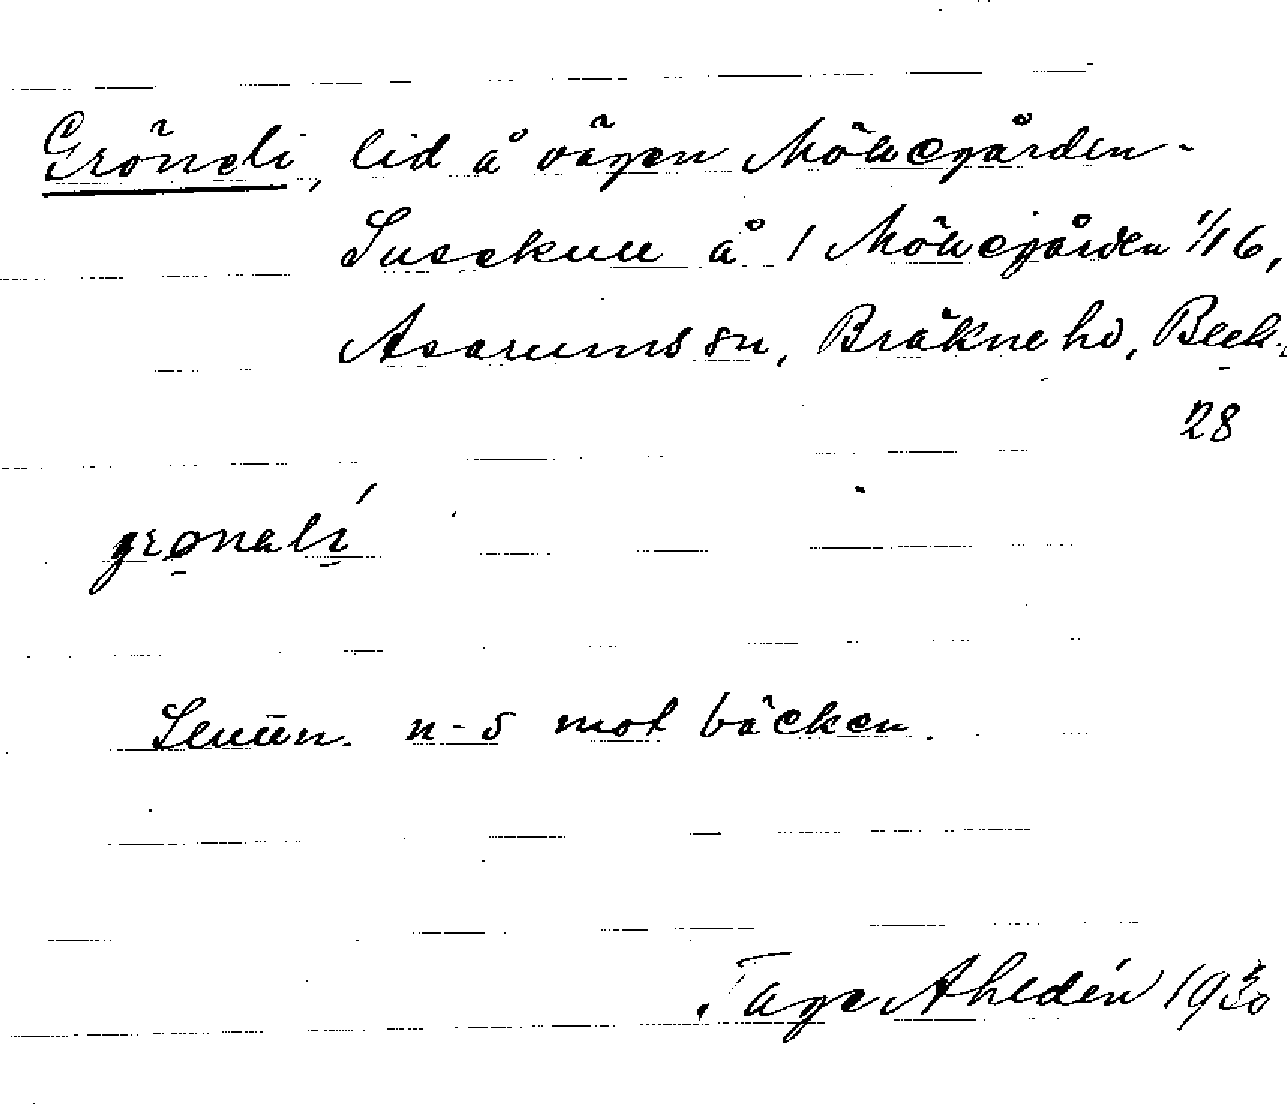 Gröneli, lid å vägen Möllegården -
Sneekull å 1 Möllegården 1/16,
Asarums sn, Bräkne hd, Blek.
28
grønalí
n-s mot bäcken.
Tage Ahldén 1930